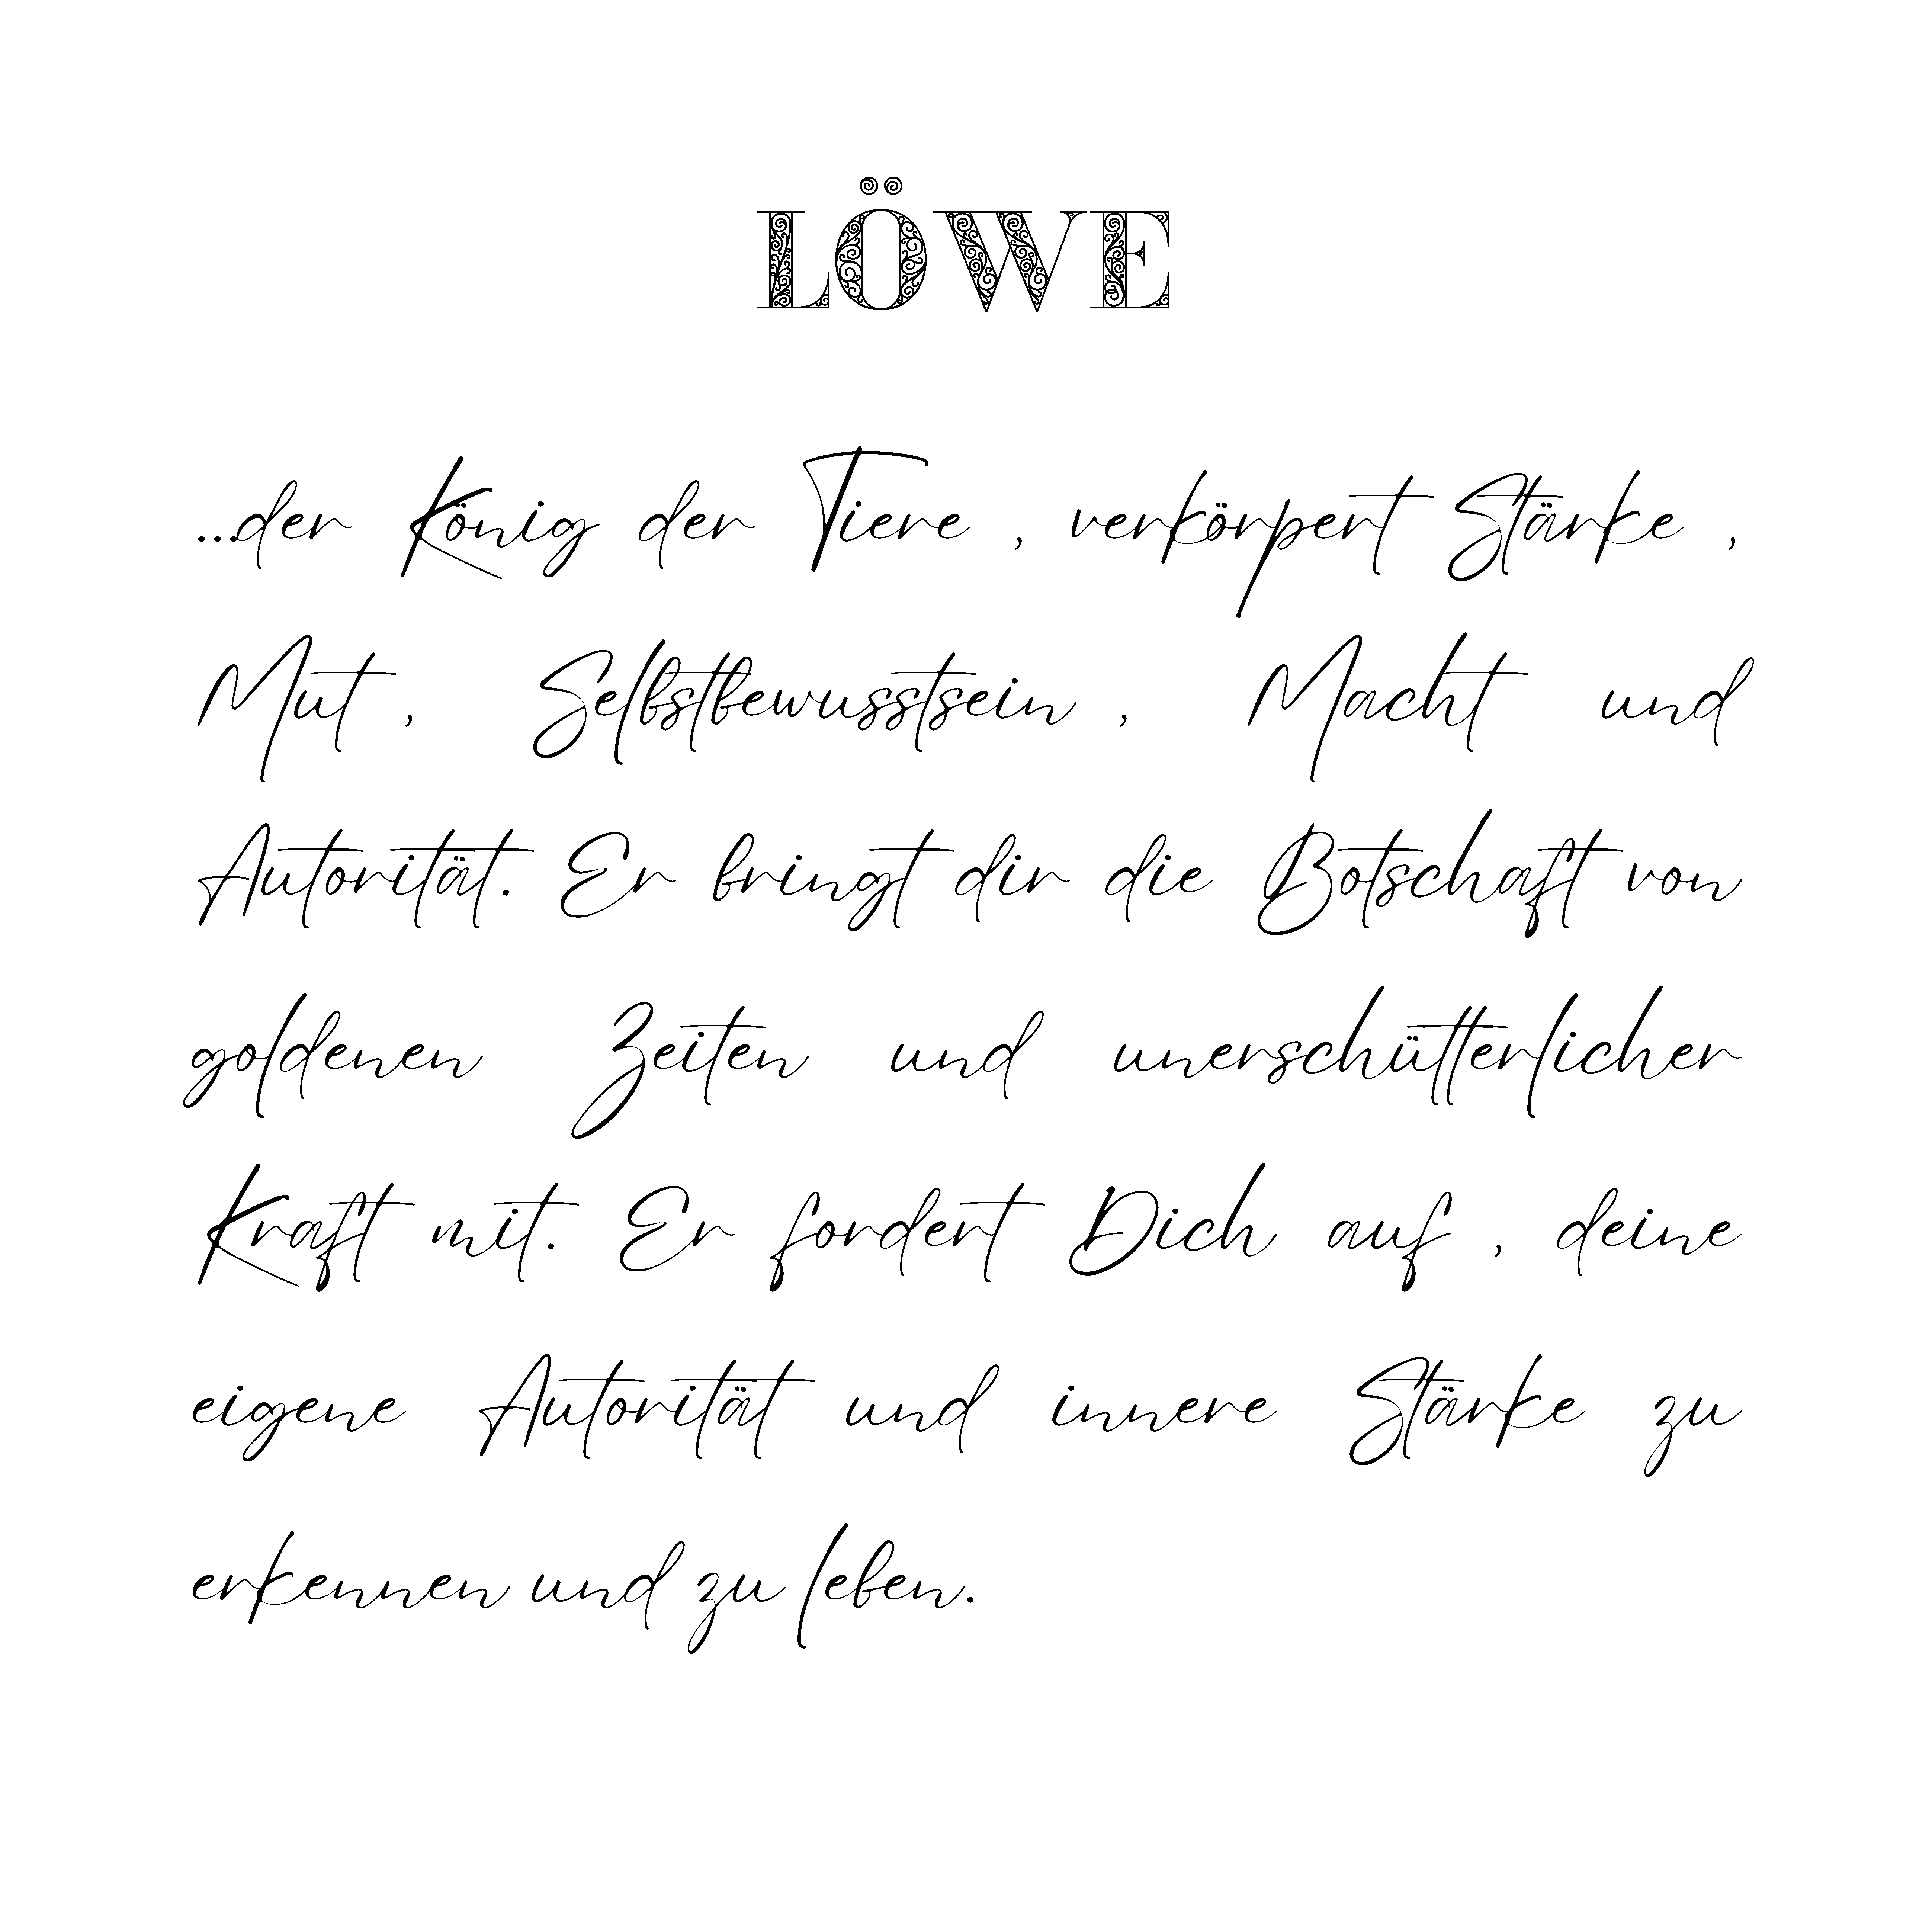 LÖWE
...der König der Tiere , verkörpert Stärke ,
Mut , Selbstbewusstsein , Macht und
Autorität. Er bringt dir die Botschaft von
goldenen Zeiten und unerschütterlicher
Kraft mit. Er fordert Dich auf , deine
eigene Autorität und innere Stärke zu
erkennen und zu leben.